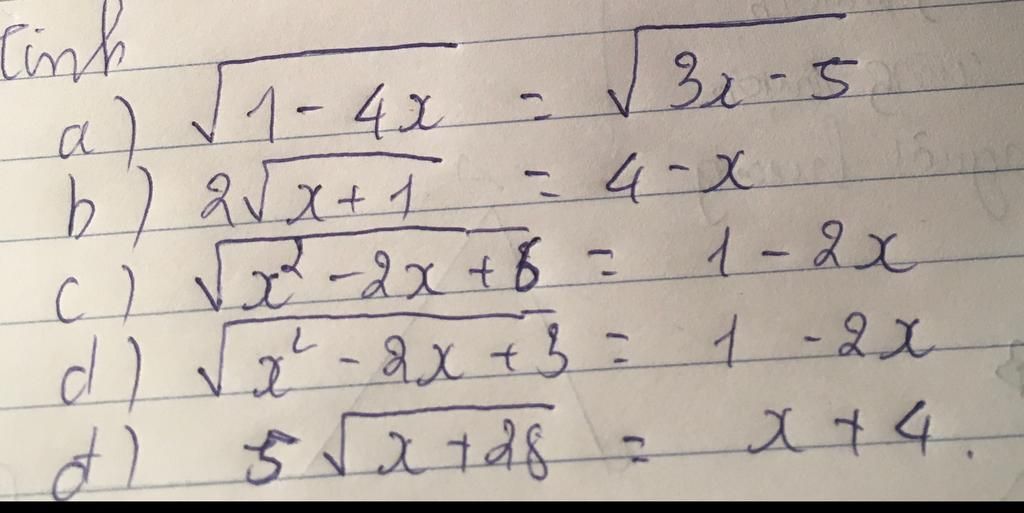 Tính
a) √(1 - 4x) = √(3x - 5)
b) 2√(x + 1) = 4 - x
c) √(x² - 2x + 6) = 1 - 2x
d) √(x² - 2x + 3) = 1 - 2x
đ) 5√(x + 28) = x + 4.